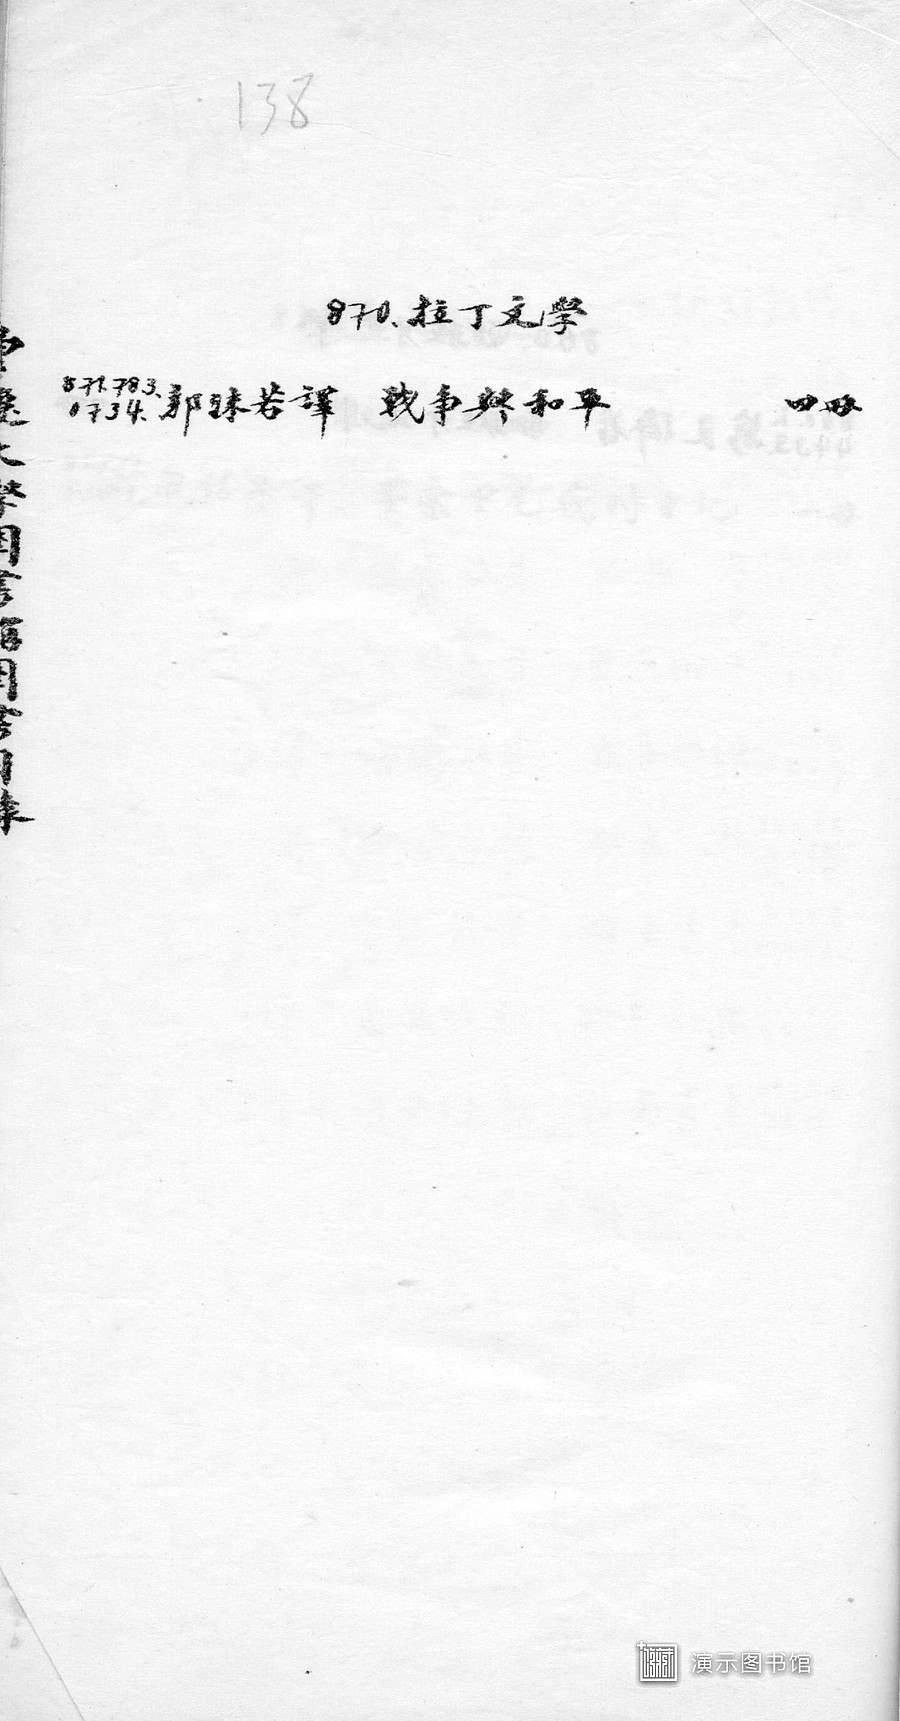 138
870.拉丁文學
871.783.
0734. 郭沫若譯 戰爭與和平 四冊
重慶大學圖書館圖書目錄
演示图书馆